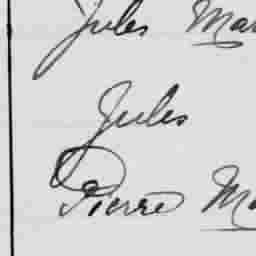 Jules
Jules
Pierre